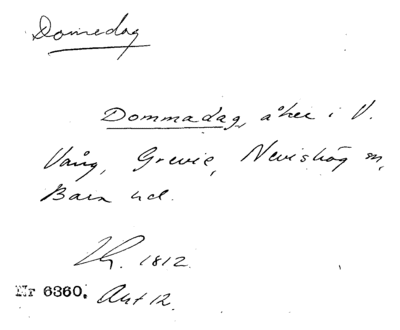 Domedag
Dommadag, åker i V.
Vång, Grevie, Nevishög sn,
Bara hd.
1812.
Nr 6360. Akt 12.